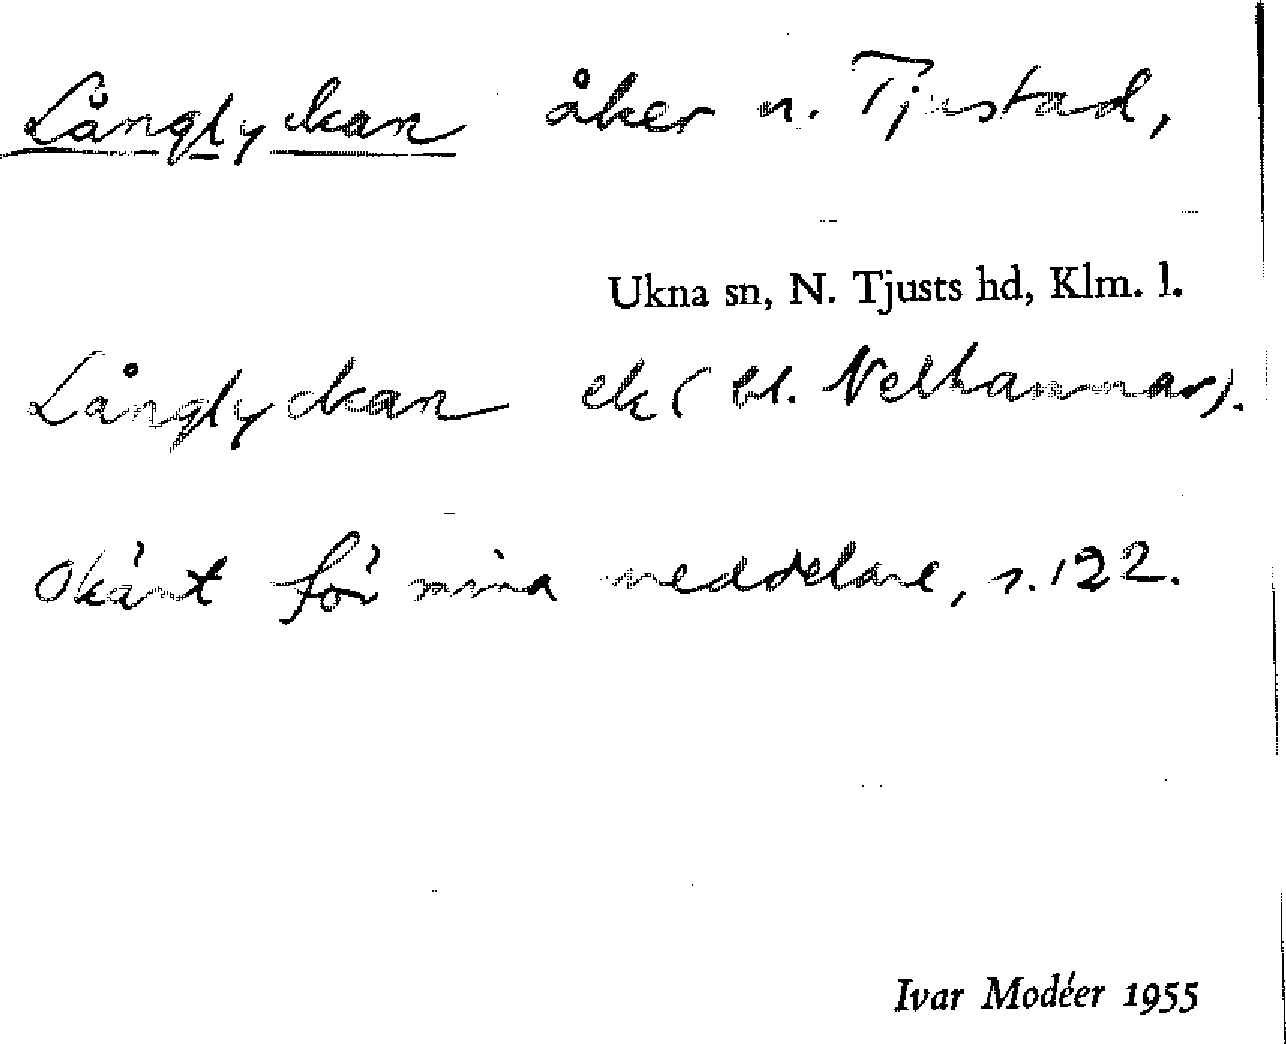 Långlyckan åker n. Tjustad,
Ukna sn, N. Tjusts hd, Klm. l.
Långlyckan ek ( bl. Nelhammar).
Okänt för mina meddelare, s. 122.
Ivar Modéer 1955